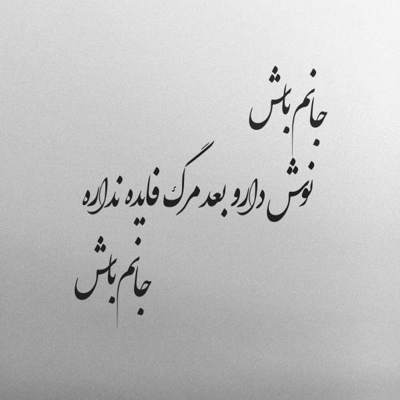 جانم باش
نوش دارو بعد مرگ فایده نداره
جانم باش